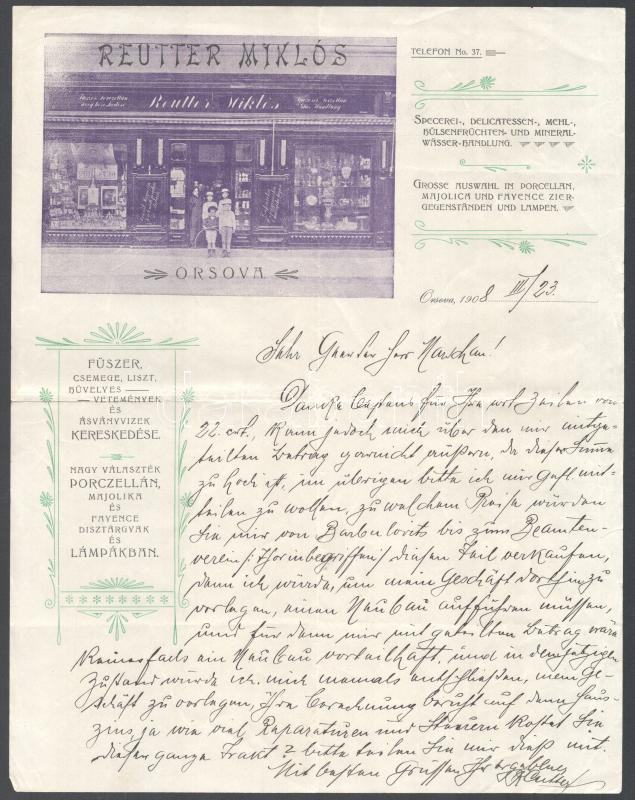 REUTTER MIKLÓS
Reutter Miklós
ORSOVA
TELEFON No. 37.
SPECEREI-, DELICATESSEN-, MEHL-,
HÜLSENFRÜCHTEN- UND MINERAL-
WÄSSER-HANDLUNG.
GROSSE AUSWAHL IN PORCELLAN,
MAJOLICA UND FAYENCE ZIER-
GEGENSTÄNDEN UND LAMPEN.
Orsova, 1908 III/23.
FŰSZER,
CSEMEGE, LISZT,
HÜVELYES
VETEMÉNYEK
ÉS
ÁSVÁNYVIZEK
KERESKEDÉSE.
NAGY VÁLASZTÉK
PORCZELLÁN,
MAJOLIKA
ÉS
FAYENCE
DISZTÁRGYAK
ÉS
LÁMPÁKBAN.
Sehr Geerter Herr
Danke bestens für Ihre wrt. Zeilen von
22. crt., kann jedoch mich über den mir mitge-
teilten Betrag garnicht äußern, da dieser Summe
zu hoch ist, im übrigen bitte ich mir gefl. mit-
teilen zu wollen, zu welchem Preise würden
Sie mir von bis zum Beamten-
verein diesen Teil verkaufen,
denn ich würde, um mein Geschäft dorthin zu
verlegen, einen Neubau aufführen müssen,
und für den mir mitgeteilten Betrag wäre
keinesfalls ein Neubau vorteilhaft, und in dem jetzigen
Zustand würde ich mich niemals entschließen, mein Ge-
schäft zu verlegen, Ihre Berechnung beruht auf dem Haus-
zins, ja wie viel Reparaturen und Steuern kostet Sie
dieser ganze Trakt? bitte teilen Sie mir dieß mit.
Mit besten Grüssen Ihr ergebener